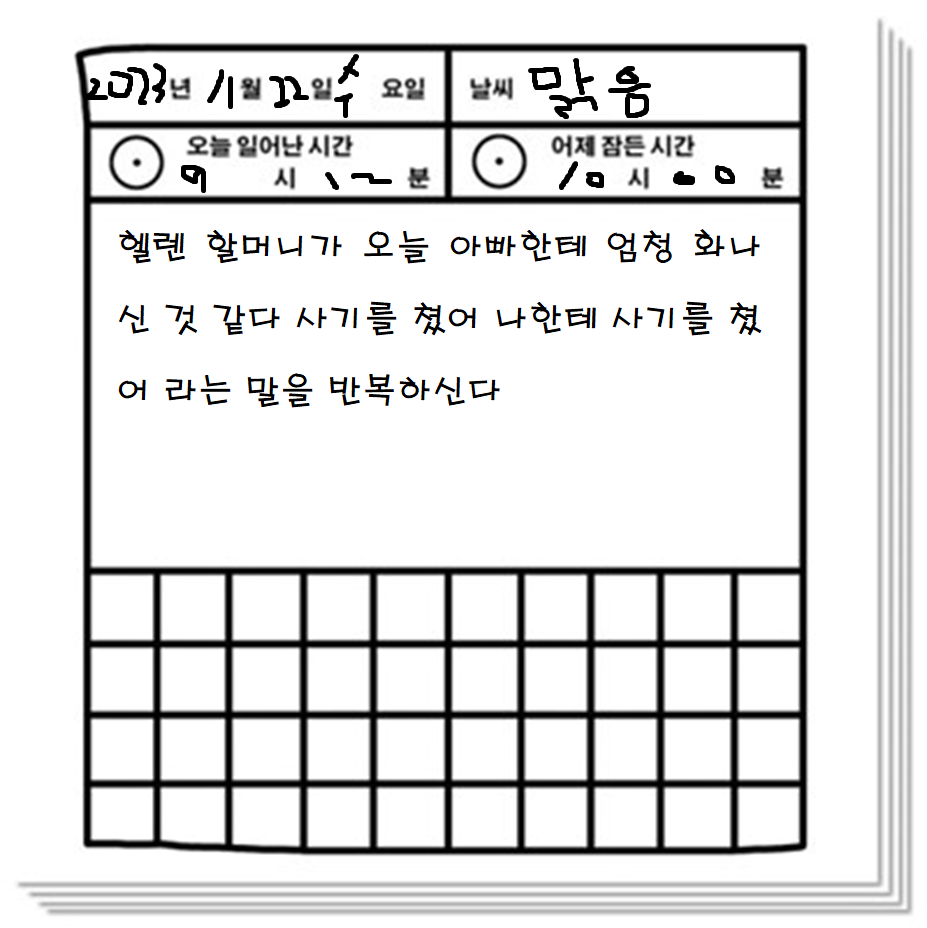 2023년 11월 22일 수 요일 날씨 맑음
오늘 일어난 시간 어제 잠든 시간
9 시 12 분 10 시 00 분
헬렌 할머니가 오늘 아빠한테 엄청 화나
신 것 같다 사기를 쳤어 나한테 사기를 쳤
어 라는 말을 반복하신다